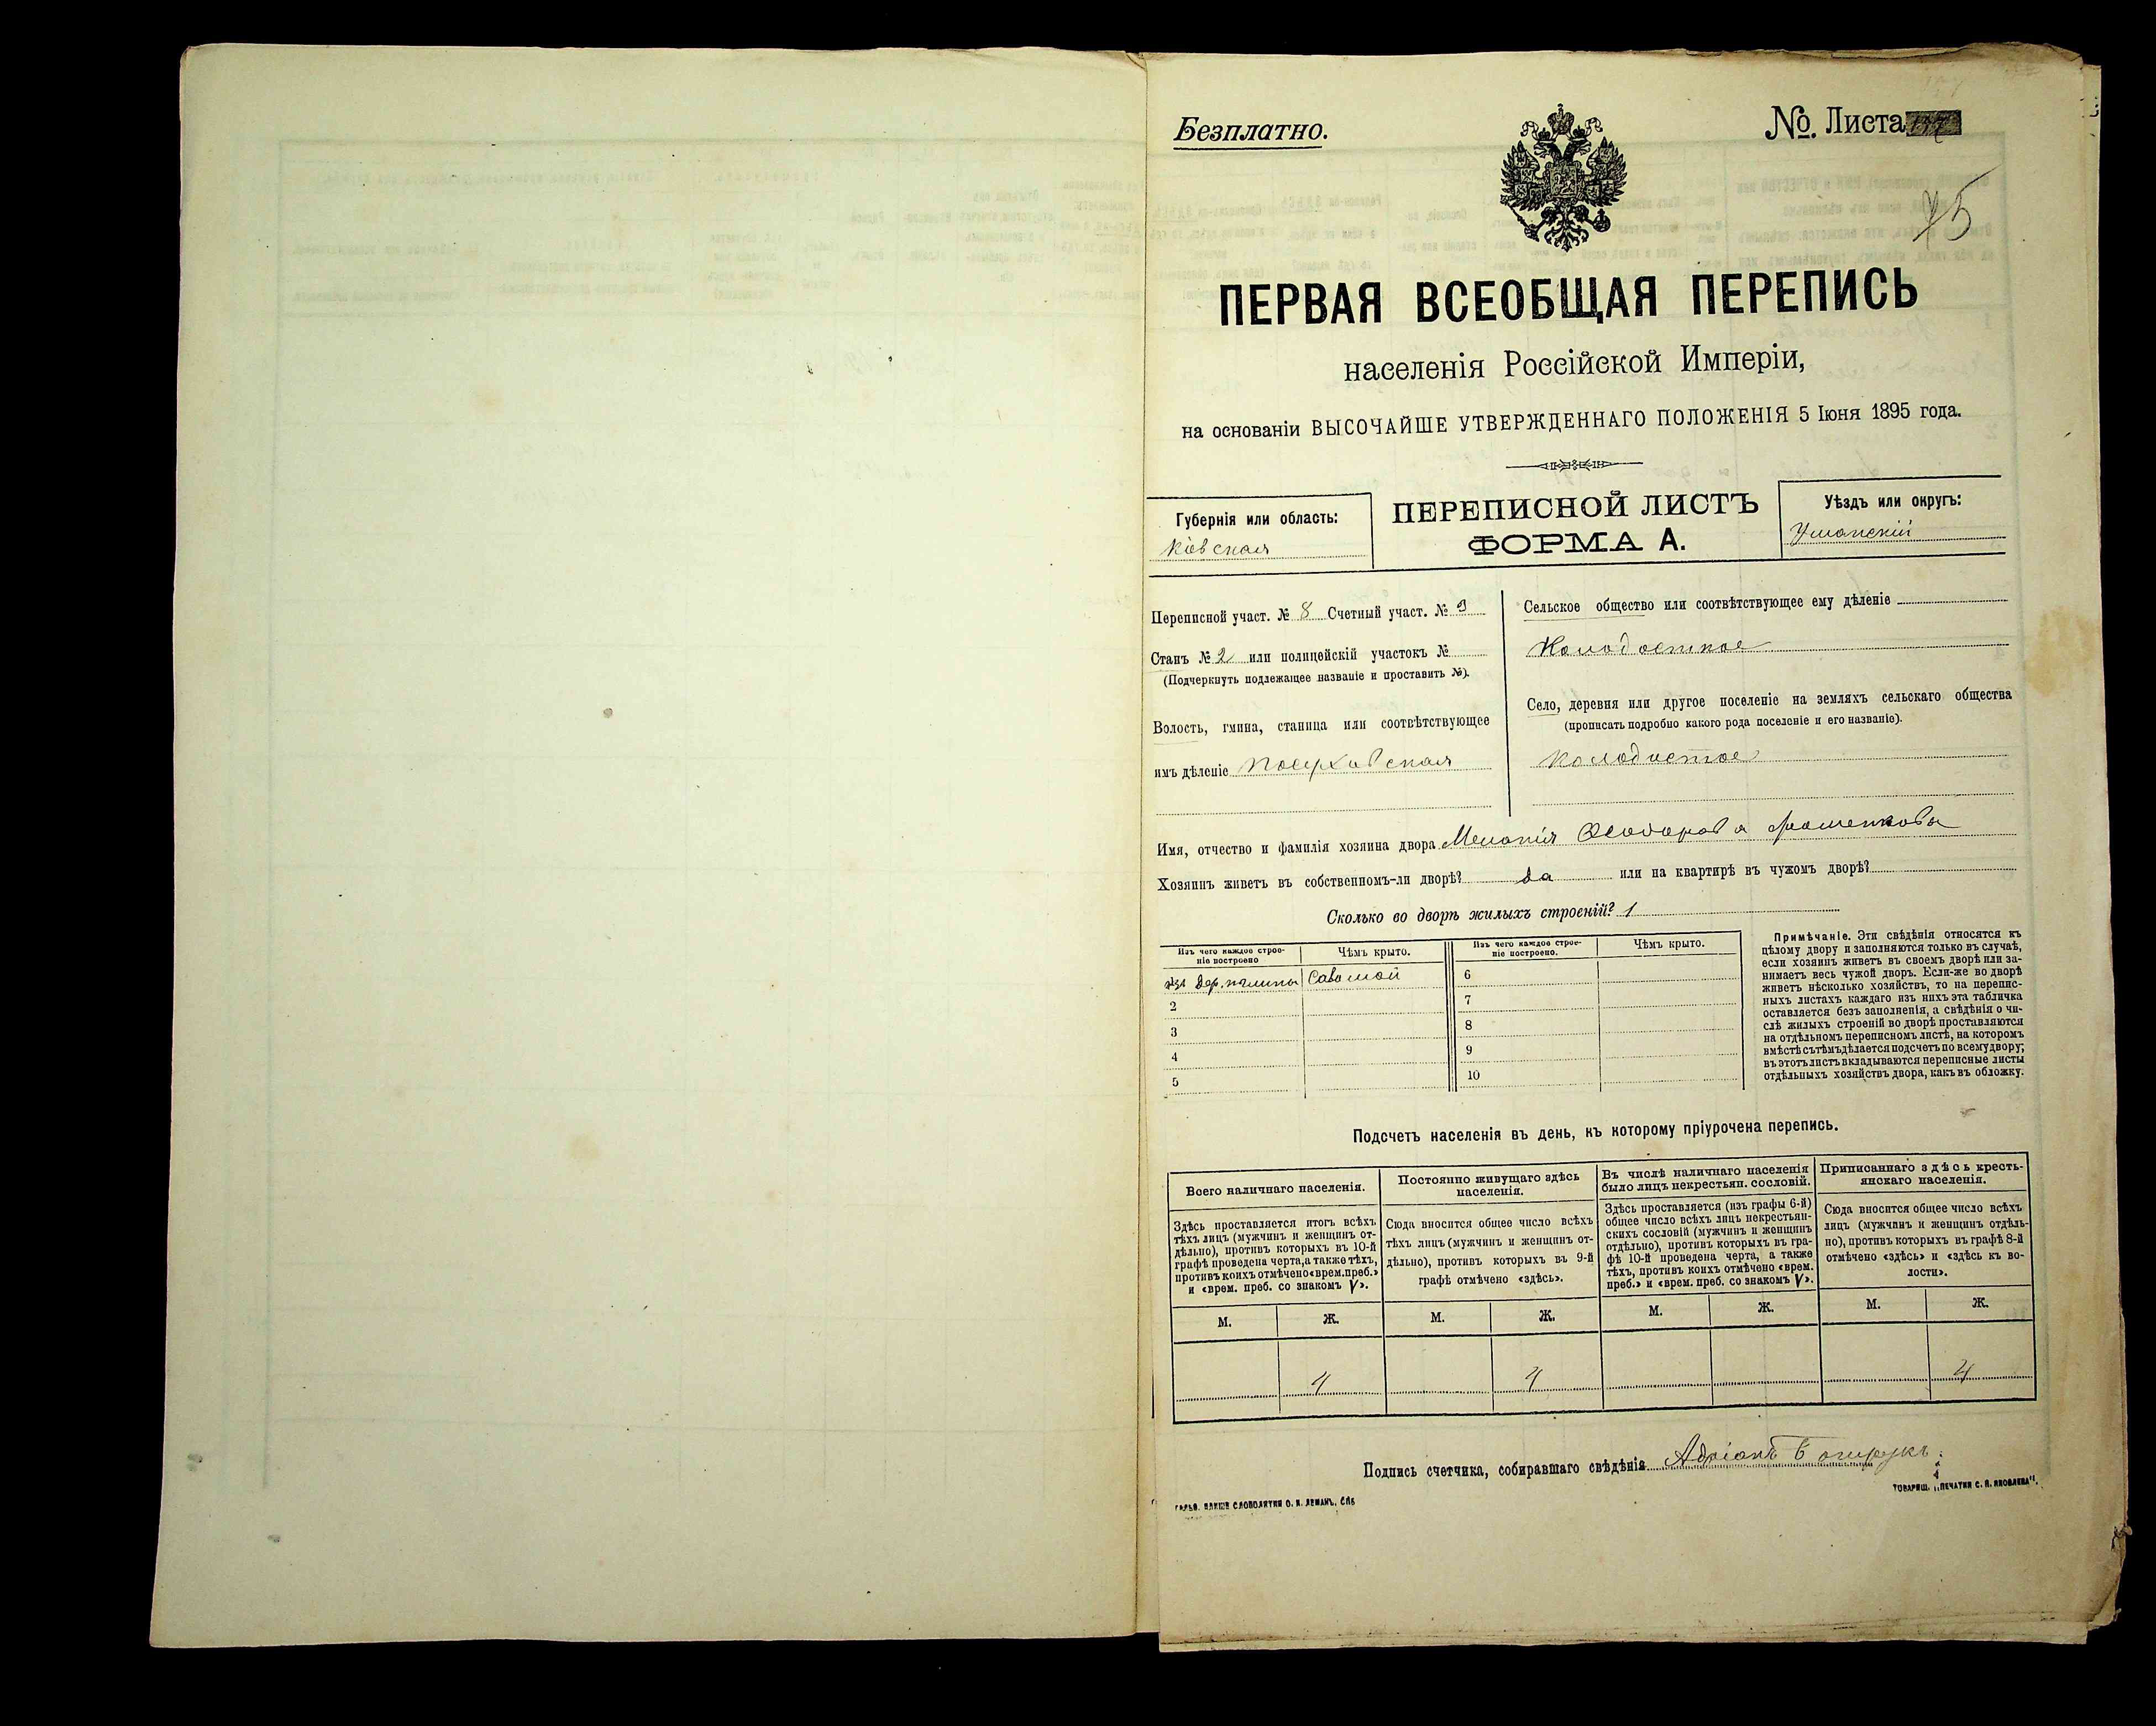 Безплатно.
№. Листа
75
ПЕРВАЯ ВСЕОБЩАЯ ПЕРЕПИСЬ
населенія Россійской Имперіи,
на основаніи ВЫСОЧАЙШЕ УТВЕРЖДЕННАГО ПОЛОЖЕНІЯ 5 Іюня 1895 года.
Губернія или область:
Кіевская
ПЕРЕПИСНОЙ ЛИСТЪ
ФОРМА А.
Уѣздъ или округъ:
Уманскій
Переписной участ. № 8 Счетный участ. № 9
Станъ № 2 или полицейскій участокъ №
(Подчеркнуть подлежащее названіе и проставить №).
Волость, гмина, станица или соотвѣтствующее
имъ дѣленіе
Сельское общество или соотвѣтствующее ему дѣленіе
Колодистое
Село, деревня или другое поселеніе на земляхъ сельскаго общества
(прописать подробно какого рода поселеніе и его названіе).
Колодистое
Имя, отчество и фамилія хозяина двора Меланія Ѳеодорова
Хозяинъ живетъ въ собственномъ-ли дворѣ? да или на квартирѣ въ чужомъ дворѣ?
Сколько во дворѣ жилыхъ строеній? 1
Изъ чего каждое строе-
ніе построено
Чѣмъ крыто.
Изъ чего каждое строе-
ніе построено.
Чѣмъ крыто.
изъ дер. и глины Соломой 6
2 7
3 8
4 9
5 10
Примѣчаніе. Эти свѣдѣнія относятся къ
цѣлому двору и заполняются только въ случаѣ,
если хозяинъ живетъ въ своемъ дворѣ или за-
нимаетъ весь чужой дворъ. Если-же во дворѣ
живетъ нѣсколько хозяйствъ, то на перепис-
ныхъ листахъ каждаго изъ нихъ эта табличка
оставляется безъ заполненія, а свѣдѣнія о чи-
слѣ жилыхъ строеній во дворѣ проставляются
на отдѣльномъ переписномъ листѣ, на которомъ
вмѣстѣ съ тѣмъ дѣлается подсчетъ по всему двору;
въ этотъ листъ вкладываются переписные листы
отдѣльныхъ хозяйствъ двора, какъ въ обложку.
Подсчетъ населенія въ день, къ которому пріурочена перепись.
Всего наличнаго населенія.
Здѣсь проставляется итогъ всѣхъ
тѣхъ лицъ (мужчинъ и женщинъ от-
дѣльно), противъ которыхъ въ 10-й
графѣ проведена черта, а также тѣхъ,
противъ коихъ отмѣчено «врем. преб.»
и «врем. преб. со знакомъ V».
Постоянно живущаго здѣсь
населенія.
Сюда вносится общее число всѣхъ
тѣхъ лицъ (мужчинъ и женщинъ от-
дѣльно), противъ которыхъ въ 9-й
графѣ отмѣчено «здѣсь».
Въ числѣ наличнаго населенія
было лицъ некрестьян. сословій.
Здѣсь проставляется (изъ графы 6-й)
общее число всѣхъ лицъ некрестьян-
скихъ сословій (мужчинъ и женщинъ
отдѣльно), противъ которыхъ въ гра-
фѣ 10-й проведена черта, а также
тѣхъ, противъ коихъ отмѣчено «врем.
преб.» и «врем. преб. со знакомъ V».
Приписаннаго здѣсь кресть-
янскаго населенія.
Сюда вносится общее число всѣхъ
лицъ (мужчинъ и женщинъ отдѣль-
но), противъ которыхъ въ графѣ 8-й
отмѣчено «здѣсь» и «здѣсь къ во-
лости».
М. Ж. М. Ж. М. Ж. М. Ж.
4 4 4
Подпись счетчика, собиравшаго свѣдѣнія Адріанъ
СЛОВОЛИТНИ О. И. ЛЕМАНЪ. СПБ
ТОВАРИЩ. „ПЕЧАТНЯ С. П. ЯКОВЛЕВА".